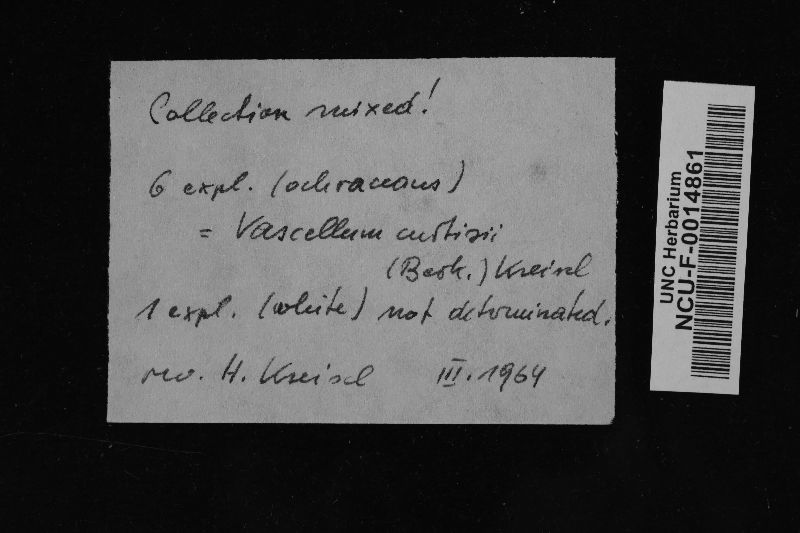 Collection mixed!
6 expl. (ochraceous)
= Vascellum curtisii
(Berk.) Kreisel
1 expl. (white) not determinated.
rev. H. Kreisel III. 1964
UNC Herbarium
NCU-F-0014861